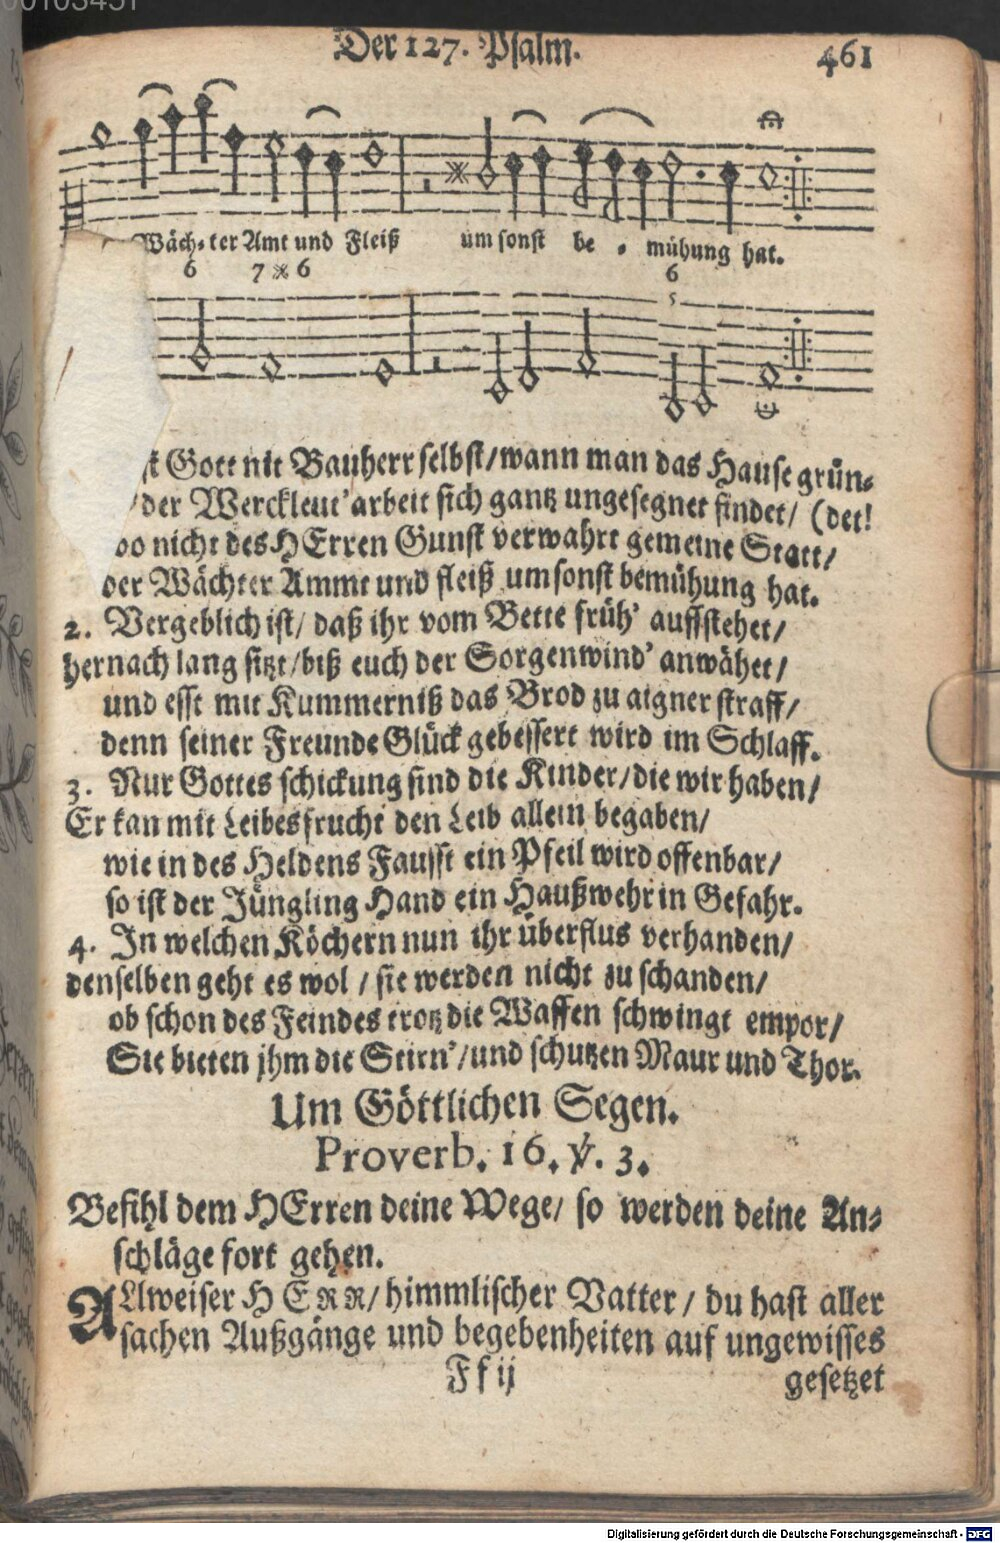 00103451
Der 127. Psalm. 461
Wäch-ter Amt und Fleiß umsonst be - mühung hat.
6 7 6 6
5
Gott nit Bauherr selbst/wann man das Hause grün-
/der Werckleut'arbeit sich gantz ungesegnet findet/ (det!
nicht des HErren Gunst verwahrt gemeine Statt/
der Wächter Ammt und fleiß umsonst bemühung hat.
2. Vergeblich ist/ daß ihr vom Bette früh' auffstehet/
hernach lang sitzt/biß euch der Sorgenwind' anwähet/
und esst mit Kummerniß das Brod zu aigner straff/
denn seiner Freunde Glück gebessert wird im Schlaff.
3. Nur Gottes schickung sind die Kinder/die wir haben/
Er kan mit Leibesfrucht den Leib allein begaben/
wie in des Heldens Fausst ein Pfeil wird offenbar/
so ist der Jüngling Hand ein Haußwehr in Gefahr.
4. In welchen Köchern nun ihr überflus verhanden/
denselben geht es wol / sie werden nicht zu schanden/
ob schon des Feindes trotz die Waffen schwingt empor/
Sie bieten jhm die Stirn'/und schutzen Maur und Thor.
Um Göttlichen Segen.
Proverb. 16. ℣. 3.
Befihl dem HErren deine Wege/ so werden deine An-
schläge fort gehen.
ALlweiser HERR/ himmlischer Vatter/ du hast aller
sachen Außgänge und begebenheiten auf ungewisses
Ff ij gesetzet
Digitalisierung gefördert durch die Deutsche Forschungsgemeinschaft - DFG